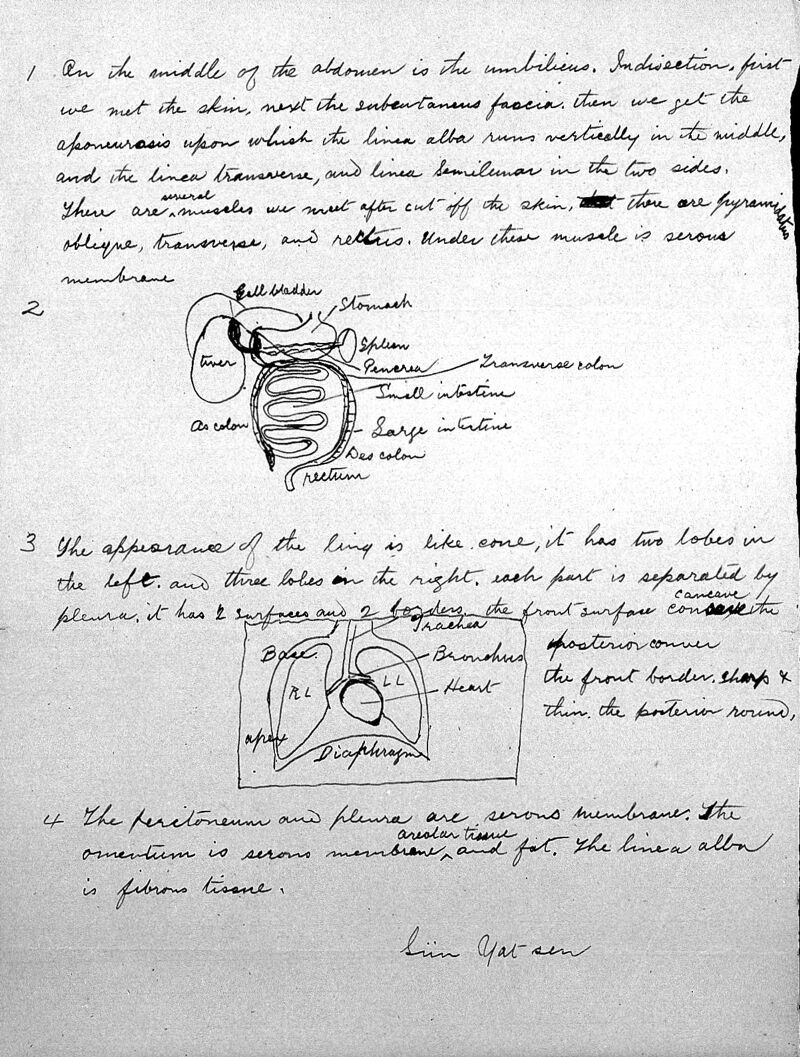 1 On the middle of the abdomen is the umbilicus. Indisection, first
we met the skin, next the subcutaneus fascia. then we get the
aponeurosis upon which the linea alba runs vertically in the middle,
and the linea transverse, and linea Semilunar in the two sides.
There are several muscles we meet after cut off the skin, there are pyramidatus
oblique, transverse, and rectus. Under these muscle is serous
membrane
2
Gall bladder
Stomach
liver
Spleen
Pencrea
Transverse colon
Small intestine
As colon
Large intertine
Des colon
rectum
3 The appearance of the ling is like cone, it has two lobes in
the left. and three lobes in the right. each part is separated by
pleura. it has 2 surfaces and 2 borders. the front surface cancave the
posterior conver
the front border. sharp &
thin. the posterior round,
Trachea
Base
Bronchus
RL
LL
Heart
apex
Diaphragm
4 The peritoneum and pleura are serous membrane. The
omentum is serous membrane, areolar tissue and fat. The linea alba
is fibrous tissue.
Sün Yat sen